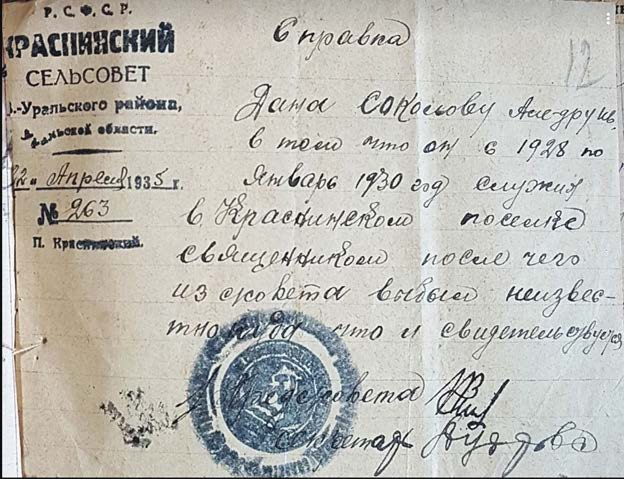 Р. С. Ф. С. Р.
КРАСНИНСКИЙ
СЕЛЬСОВЕТ
-Уральского района,
области.
22 " Апреля 1935 г.
№ 263
П. Краснинский.
12
Справка
Дана Соколову
в том что он с 1928 по
Январь 1930 год служил
в Краснинском поселке
священником после чего
из с/совета выбыл неизвес-
тно куда что и свидетельствуется
Пред с/совета
Секретарь